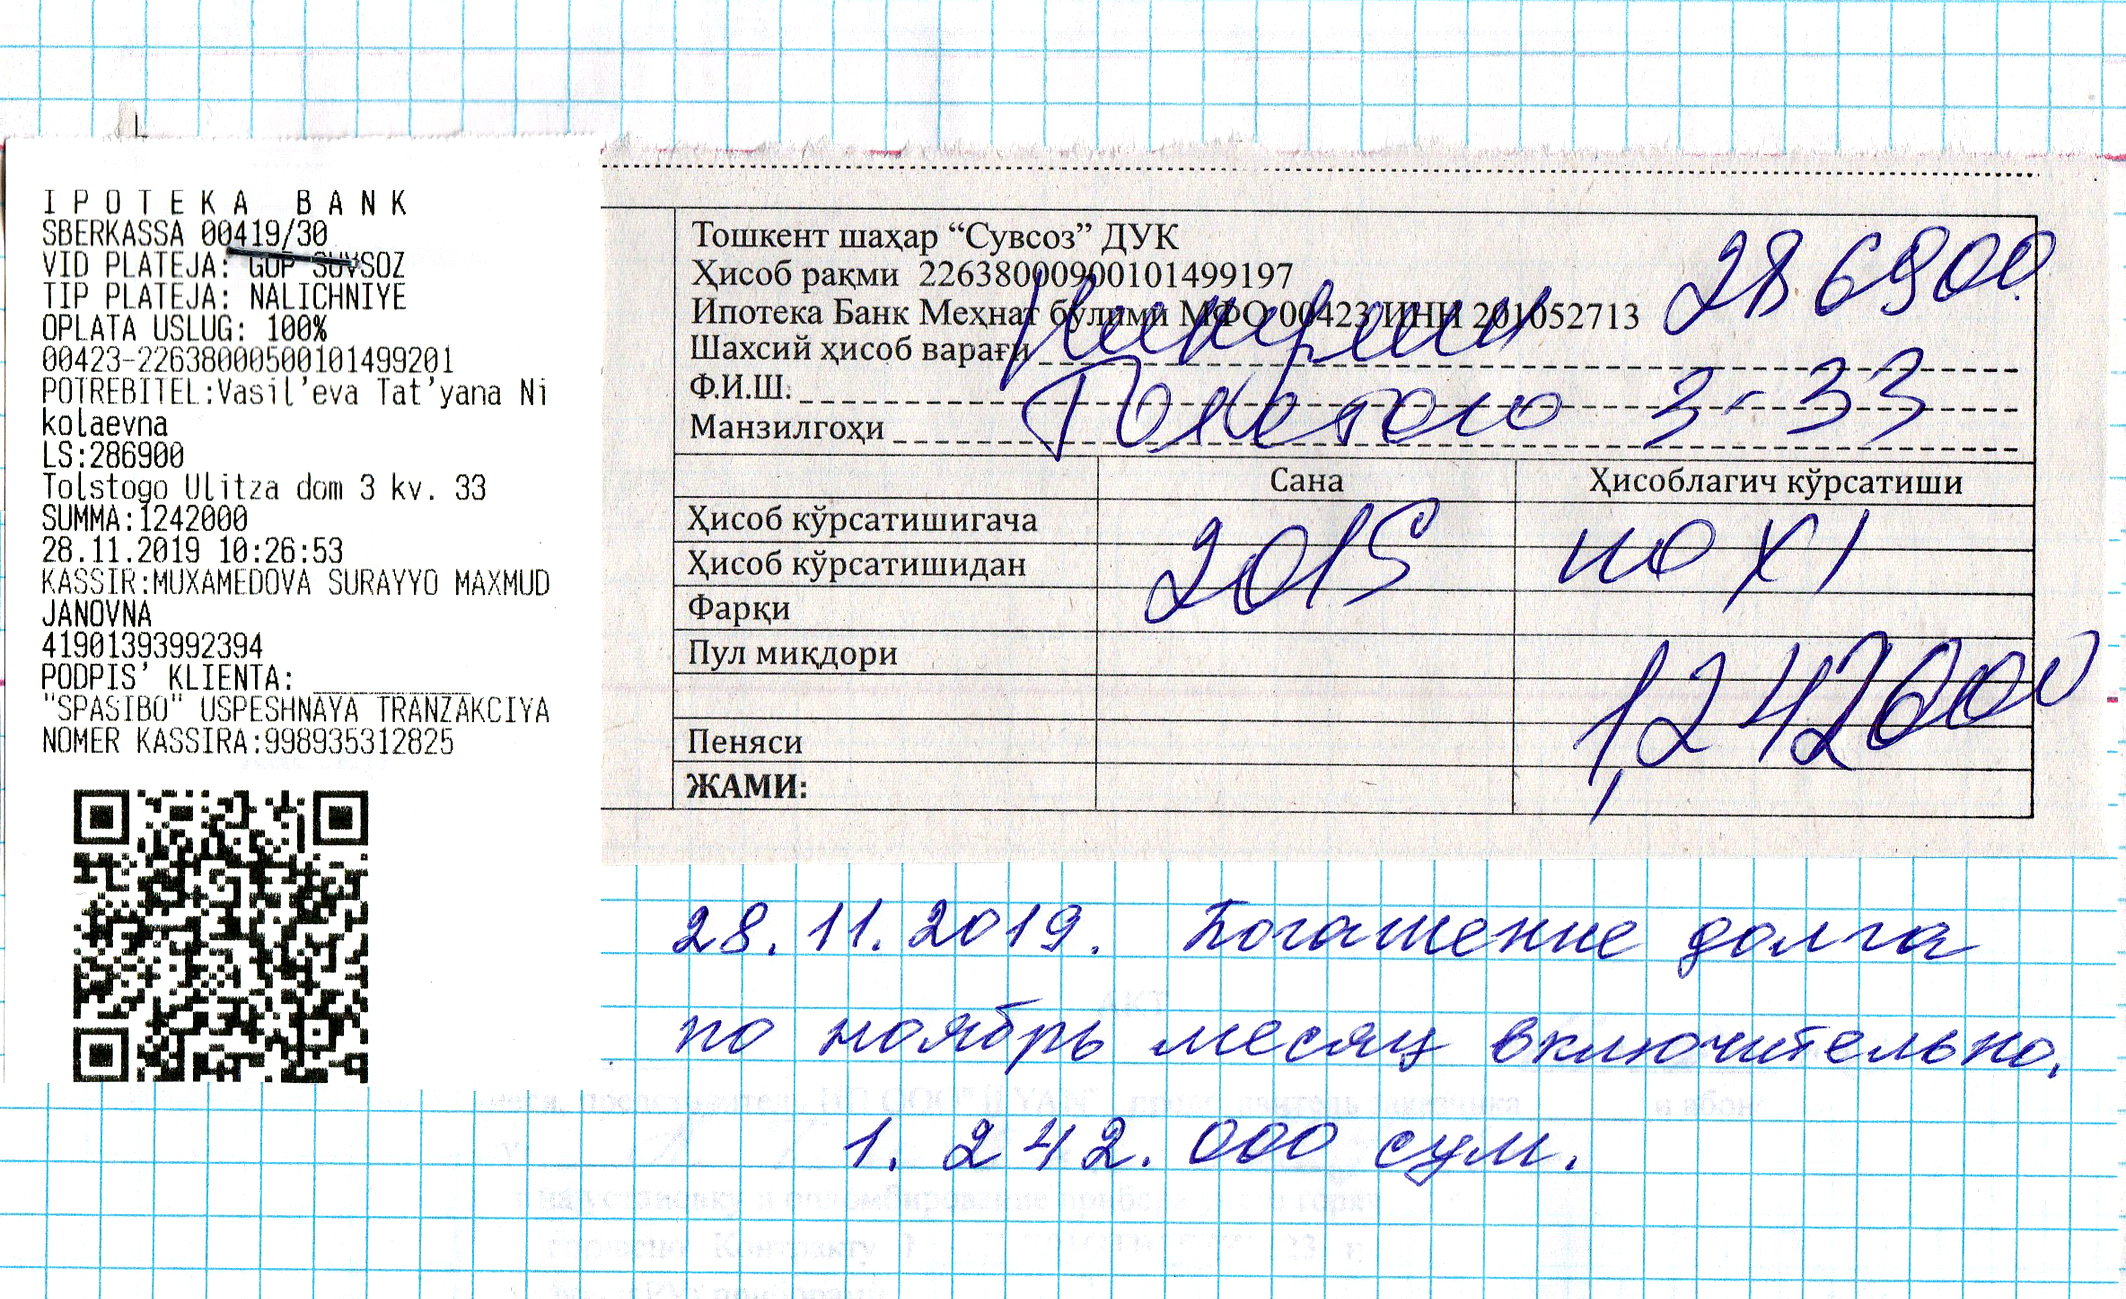 I P O T E K A   B A N K
SBERKASSA 00419/30
VID PLATEJA: GUP SUVSOZ
TIP PLATEJA: NALICHNIYE
OPLATA USLUG: 100%
00423-22638000500101499201
POTREBITEL:Vasil'eva Tat'yana Ni
kolaevna
LS:286900
Tolstogo Ulitza dom 3 kv. 33
SUMMA:1242000
28.11.2019 10:26:53
KASSIR:MUXAMEDOVA SURAYYO MAXMUD
JANOVNA
41901393992394
PODPIS' KLIENTA: __________
"SPASIBO" USPESHNAYA TRANZAKCIYA
NOMER KASSIRA:998935312825
Тошкент шаҳар “Сувсоз” ДУК
286900
Ҳисоб рақми 22638000900101499197
Ипотека Банк Меҳнат бўлими МФО 00423 ИНН 201052713
Шахсий ҳисоб варағи
Ф.И.Ш.
Толстого 3-33
Манзилгоҳи
Сана Ҳисоблагич кўрсатиши
Ҳисоб кўрсатишигача
2015 по XI
Ҳисоб кўрсатишидан
Фарқи
Пул миқдори
1,242000
Пеняси
ЖАМИ:
28.11.2019. Погашение долга
по ноябрь месяц включительно.
1.242.000 сум.
АКТ